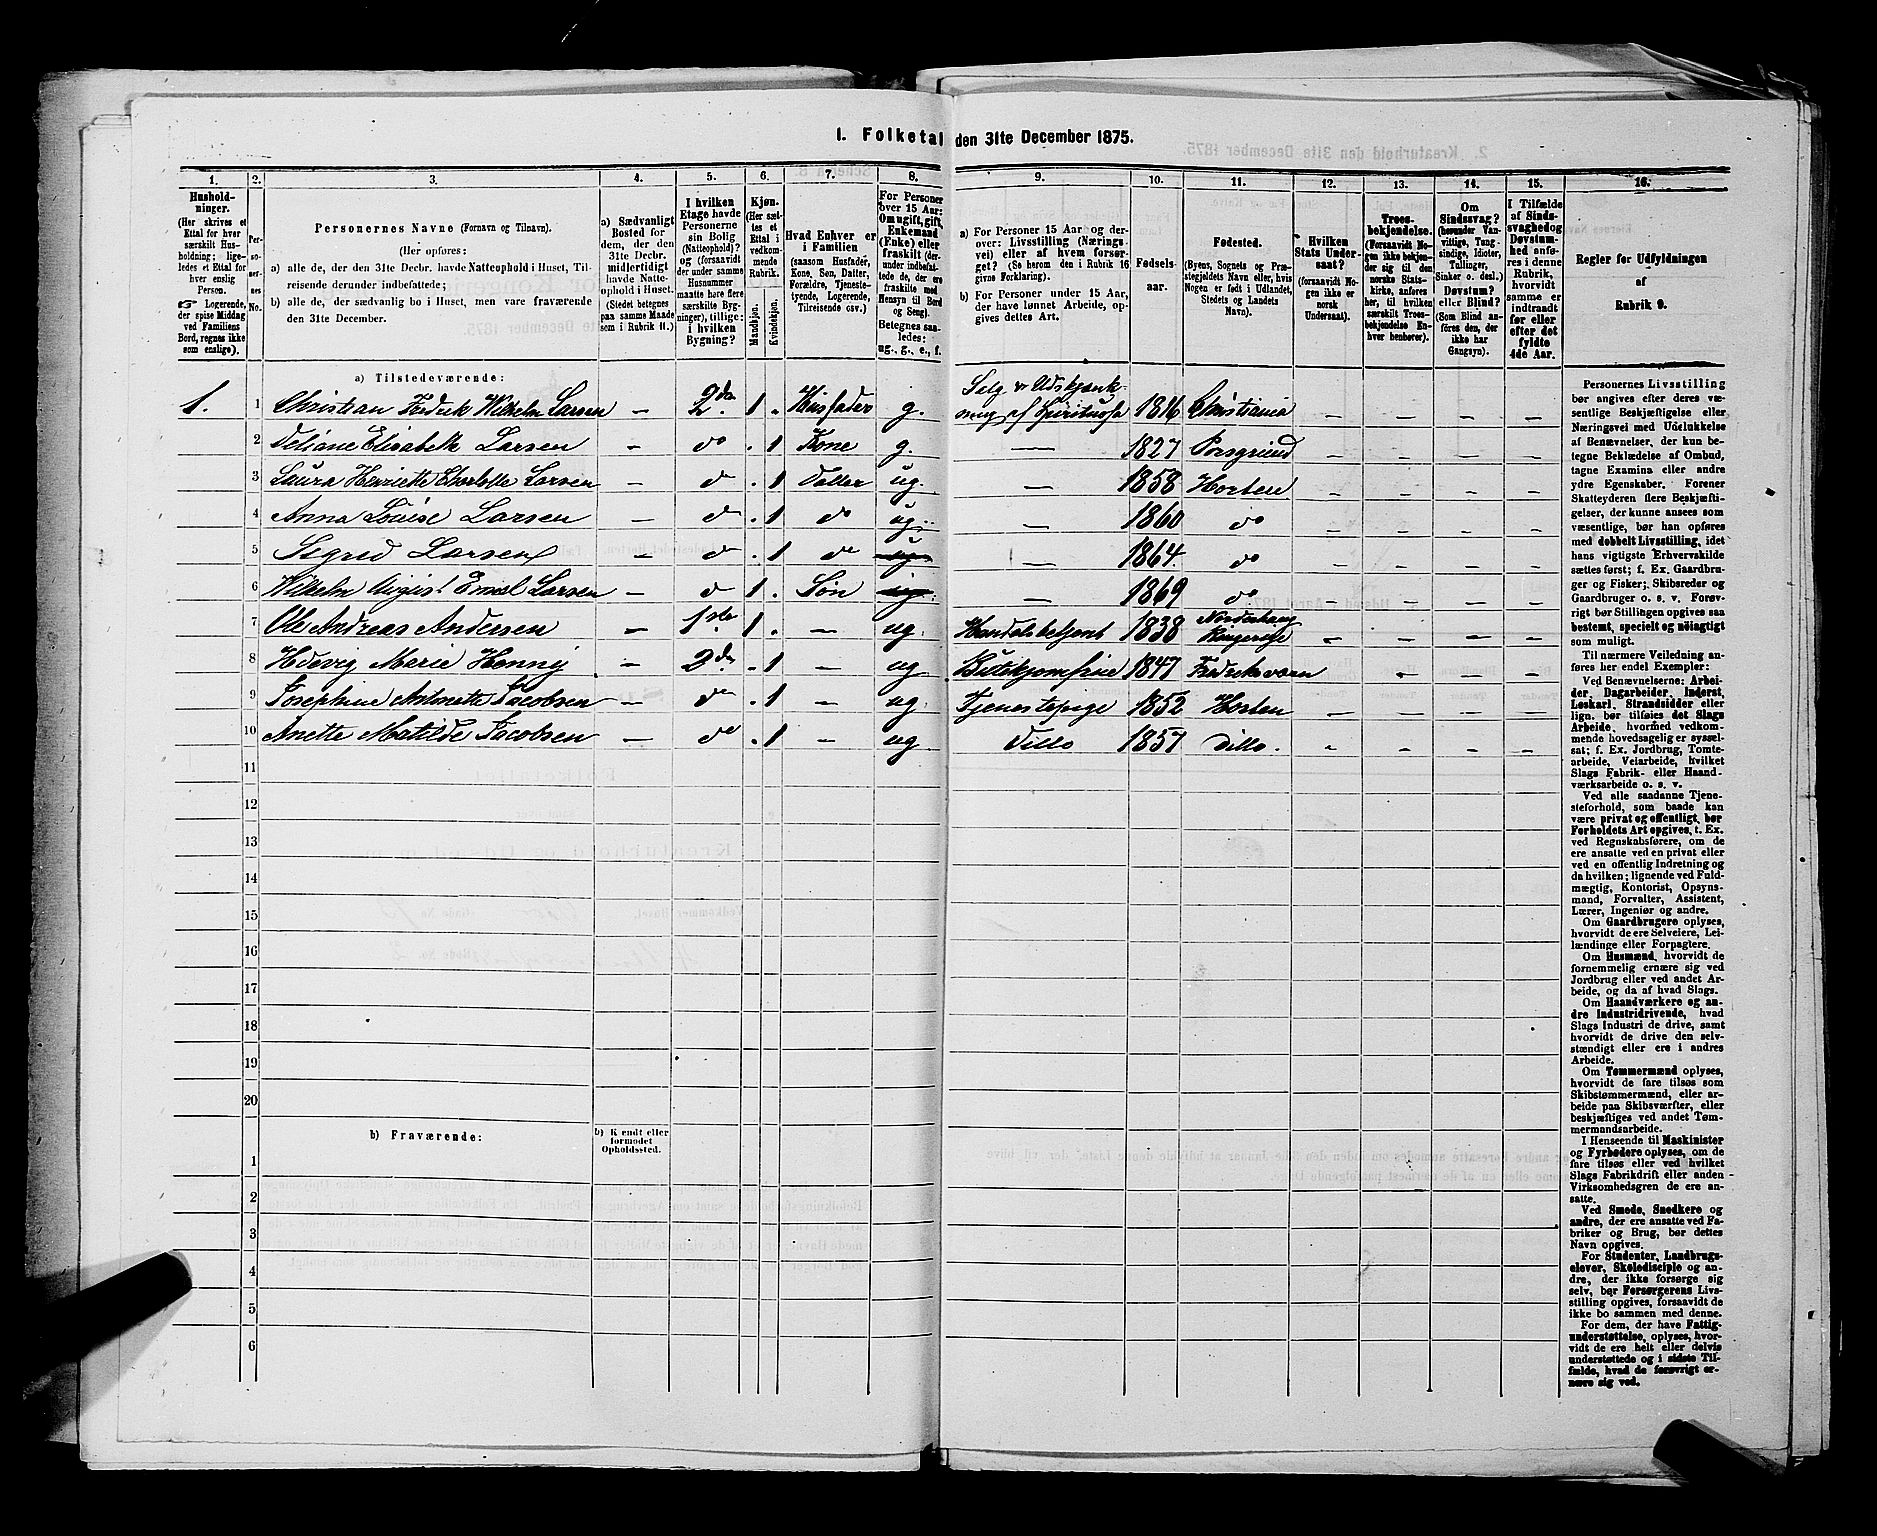 1. Folketal den 31te December 1875.
1. 2. 3. 4. 5. 6. 7. 8. 9. 10. 11. 12. 13. 14. 15. 16.
Hushold-
ninger.
(Her skrives et
Ettal for hver
særskilt Hus-
holdning; lige-
ledes et Ettal for
hver enslig
Person.
☞ Logerende,
der spise Middag
ved Familiens
Bord, regnes ikke
som enslige).
Per-
so-
ner-
nes
No.
Personernes Navne (Fornavn og Tilnavn).
(Her opføres:
a) alle de, der den 31te Decbr. havde Natteophold i Huset, Til-
reisende derunder indbefattede;
b) alle de, der sædvanlig bo i Huset, men vare fraværende
den 31te December.
a) Sædvanligt
Bosted for
dem, der den
31te Decbr.
midlertidigt
havde Natte-
ophold i Huset.
(Stedet betegnes
paa samme Maade
som i Rubrik 11.)
I hvilken
Etage havde
Personerne
sin Bolig
(Natteophold)?
og (forsaavidt
der under samme
Husnummer
maatte høre flere
særskilte Byg-
ninger), tillige:
i hvilken
Bygning?
Kjøn.
(Her sæt-
tes et
Ettal i
vedkom-
mende
Rubrik.
Mandkjøn.
Kvindekjøn.
Hvad Enhver er
i Familien
(saasom Husfader,
Kone, Søn, Datter,
Forældre, Tjeneste-
tyende, Logerende,
Tilreisende osv.)
For Personer
over 15 Aar:
Om ugift, gift,
Enkemand
(Enke) eller
fraskilt (der-
under indbefat-
tede de, der ere
fraskilte med
Hensyn til Bord
og Seng).
Betegnes saa-
ledes:
ug., g., e., f.
a) For Personer 15 Aar og der-
over: Livsstilling (Nærings-
vei) eller af hvem forsør-
get? (Se herom den i Rubrik 16
givne Forklaring).
b) For Personer under 15 Aar,
der have lønnet Arbeide, op-
gives dettes Art.
Fødsels-
aar.
Fødested.
(Byens, Sognets og Præ-
stegjeldets Navn eller, hvis
Nogen er født i Udlandet,
Stedets og Landets
Navn).
Hvilken
Stats Under-
saat?
(forsaavidt No-
gen ikke er
norsk
Undersaat).
Troes-
bekjendelse.
(Forsaavidt No-
gen ikke bekjen-
der sig til den
norske Stats-
kirke, anføres
her, til hvilken
særskilt Troes-
bekjendelse En-
hver henhører).
Om
Sindssvag?
(herunder Van-
vittige, Tung-
sindige, Idioter,
Tullinger,
Sinker o. desl.)
Døvstum?
eller Blind?
(Som Blind an-
føres den, der
ikke har
Gangsyn).
I Tilfælde
af Sinds-
svaghed og
Døvstum-
hed anfø-
res i denne
Rubrik,
hvorvidt
samme er
indtraadt
før eller
efter det
fyldte
4de Aar.
Regler for Udfyldningen
af
Rubrik 9.
a) Tilstedeværende:
1. 1 Christian Fredrik Wilhelm Larsen — 2den 1 . Husfader g. Salg & Udskjænk-
ning af Spirituosa 1816 Christiania — — — —
2 Larsen — do . 1 Kone g. — 1827 Porsgrund — — — —
3 Laura Henriette Charlotte Larsen — do . 1 Datter ug. — 1858 Horten — — — —
4 Anna Louise Larsen — do . 1 do ug. — 1860 do — — — —
5 Sigrid Larsen — do . 1 do ug — 1864. do — — — —
6 Wilhelm August Emil Larsen — do 1 . Søn ug. — 1869 do — — — —
7 Ole Andreas Andersen — 1ste 1 . — ug. Handelsbetjent 1838 Norderhoug
Ringerige — — — —
8 Hedevig Marie — 2den . 1 — ug Butikjomfrue 1847 Fredriksværn — — — —
9 Josephine Antonette Jacobsen — do . 1 — ug. Tjenestepige 1852 Horten — — — —
10 Anette Matilde Jacobsen — do . 1 — ug Ditto 1857 Ditto. — — — —
11
12
13
14
15
16
17
18
19
20
b) Fraværende:
b) Kjendt eller
formodet
Opholdssted.
1
2
3
4
5
6
Personernes Livsstilling
bør angives efter deres væ-
sentlige Beskjæftigelse eller
Næringsvei med Udelukkelse
af Benævnelser, der kun be-
tegne Beklædelse af Ombud,
tagne Examina eller andre
ydre Egenskaber. Forener
Skatteyderen flere Beskjæfti-
gelser, der kunne ansees som
væsentlige, bør han opføres
med dobbelt Livsstilling, idet
hans vigtigste Erhvervskilde
sættes først; f. Ex. Gaardbru-
ger og Fisker; Skibsreder og
Gaardbruger o. s. v. Forøv-
rigt bør Stillingen opgives saa
bestemt, specielt og nøiagtigt
som muligt.
Til nærmere Veiledning an-
føres her endel Exempler:
Ved Benævnelserne: Arbei-
der, Dagarbeider, Inderst,
Løskarl, Strandsidder eller
lign. bør tilføies det Slags
Arbeide, hvormed vedkom-
mende hovedsagelig er syssel-
sat; f. Ex. Jordbrug, Tomte-
arbeide, Veiarbeide, hvilket
Slags Fabrik- eller Haand-
værksarbeide o. s. v.
Ved alle saadanne Tjene-
steforhold, som baade kan
være privat og offentligt, bør
Forholdets Art opgives, t. Ex.
ved Regnskabsførere, om de
ere ansatte ved en privat eller
ved en offentlig Indretning og
da hvilken; lignende ved Fuld-
mægtig, Kontorist, Opsyns-
mand, Forvalter, Assistent,
Lærer, Ingeniør og andre.
Om Gaardbrugere oplyses,
hvorvidt de ere Selveiere, Lei-
lændinge eller Forpagtere.
Om Husmænd, hvorvidt de
fornemmelig ernære sig ved
Jordbrug eller ved andet Ar-
beide, og da af hvad Slags.
Om Haandværkere og an-
dre Industridrivende, hvad
Slags Industri de drive, samt
hvorvidt de drive den selv-
stændigt eller ere i andres
Arbeide.
Om Tømmermænd oplyses,
hvorvidt de fare tilsøs som
Skibstømmermænd, eller ar-
beide paa Skibsværfter, eller
beskjæftiges ved andet Tøm-
mermandsarbeide.
I Henseende til Maskinister
og Fyrbødere oplyses, om de
fare tilsøs eller ved hvilket
Slags Fabrikdrift eller anden
Virksomhedsgren de ere an-
satte.
Ved Smede, Snedkere og
andre, der ere ansatte ved Fa-
briker og Brug, bør dettes
Navn opgives.
For Studenter, Landbrugs-
elever, Skoledisciple og an-
dre, der ikke forsørge sig
selv, bør Forsørgerens Livs-
stilling opgives, forsaavidt de
ikke bo sammen med denne.
For dem, der have Fattig-
understøttelse, oplyses, hvor-
vidt de ere helt eller delvis
understøttede og i sidste Til-
fælde, hvad de forøvrigt er-
nære sig ved.